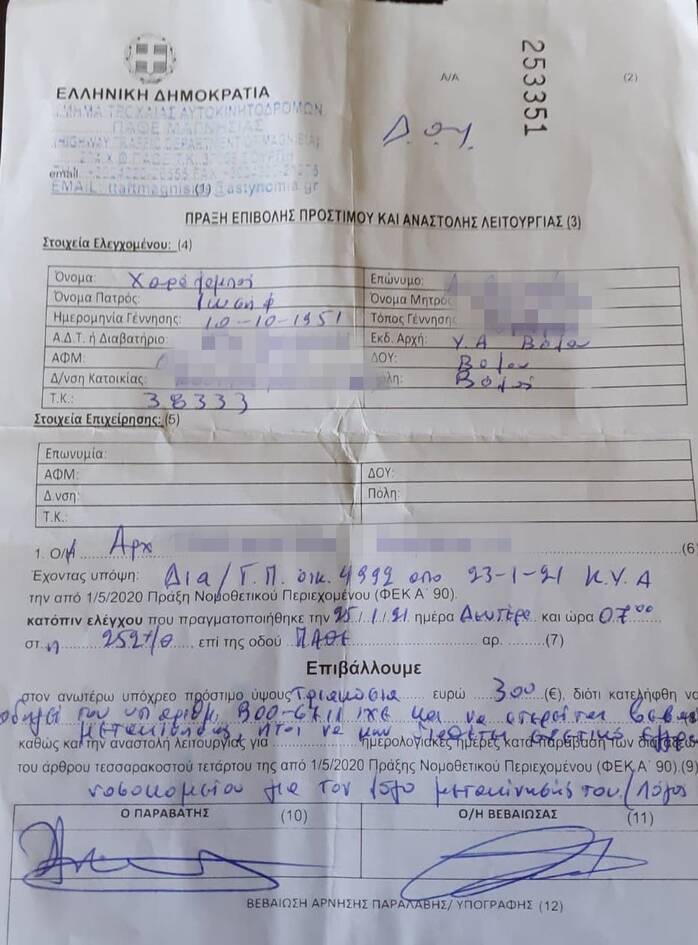 253351
Α/Α (2)
ΕΛΛΗΝΙΚΗ ΔΗΜΟΚΡΑΤΙΑ
Δ.Ο.Υ.
ΤΜΗΜΑ ΤΡΟΧΑΙΑΣ ΑΥΤΟΚΙΝΗΤΟΔΡΟΜΩΝ
ΠΑΘΕ ΜΑΓΝΗΣΙΑΣ
(HIGHWAY TRAFFIC DEPARTMENT OF MAGNESIA)
email
EMAIL: ttaitmagnis(1)@astynomia.gr
ΠΡΑΞΗ ΕΠΙΒΟΛΗΣ ΠΡΟΣΤΙΜΟΥ ΚΑΙ ΑΝΑΣΤΟΛΗΣ ΛΕΙΤΟΥΡΓΙΑΣ (3)
Στοιχεία Ελεγχομένου: (4)
Όνομα: Χαράλαμπος Επώνυμο:
Όνομα Πατρός: Ιωσήφ Όνομα Μητρός
Ημερομηνία Γέννησης: 10-10-1951 Τόπος Γέννησης
Α.Δ.Τ. ή Διαβατήριο: Εκδ. Αρχή: Υ.Α Βόλου
ΑΦΜ: ΔΟΥ: Βόλου
Δ/νση Κατοικίας: Πόλη: Βόλος
Τ.Κ.: 38333
Στοιχεία Επιχείρησης: (5)
Επωνυμία:
ΑΦΜ: ΔΟΥ:
Δ.νση: Πόλη:
Τ.Κ.:
1. Ο/Η Αρχ (6)
Έχοντας υπόψη: Δια/Γ.Π. οικ. 4992 από 23-1-21 Κ.Υ.Α
την από 1/5/2020 Πράξη Νομοθετικού Περιεχομένου (ΦΕΚ Α΄ 90).
κατόπιν ελέγχου που πραγματοποιήθηκε την 25/1/21 ημέρα Δευτέρα και ώρα 07 00
στ η 252 χ/θ, επί της οδού ΠΑΘΕ αρ. (7)
Επιβάλλουμε
στον ανωτέρω υπόχρεο πρόστιμο ύψους Τριακόσια ευρώ 300 (€), διότι κατελήφθη να
οδηγεί του υπ αριθμ. ΙΧΕ και να στερείται
μετακίνησης ήτοι να μην διαθέτει σχετικό
καθώς και την αναστολή λειτουργίας για ημερολογιακές ημέρες κατά παράβαση των διατάξεων
του άρθρου τεσσαρακοστού τετάρτου της από 1/5/2020 Πράξης Νομοθετικού Περιεχομένου (ΦΕΚ Α΄ 90).(9)
νοσοκομείου για τον λόγο μετακίνησής του/Λόγος
Ο ΠΑΡΑΒΑΤΗΣ (10) Ο/Η ΒΕΒΑΙΩΣΑΣ (11)
ΒΕΒΑΙΩΣΗ ΑΡΝΗΣΗΣ ΠΑΡΑΛΑΒΗΣ/ ΥΠΟΓΡΑΦΗΣ (12)